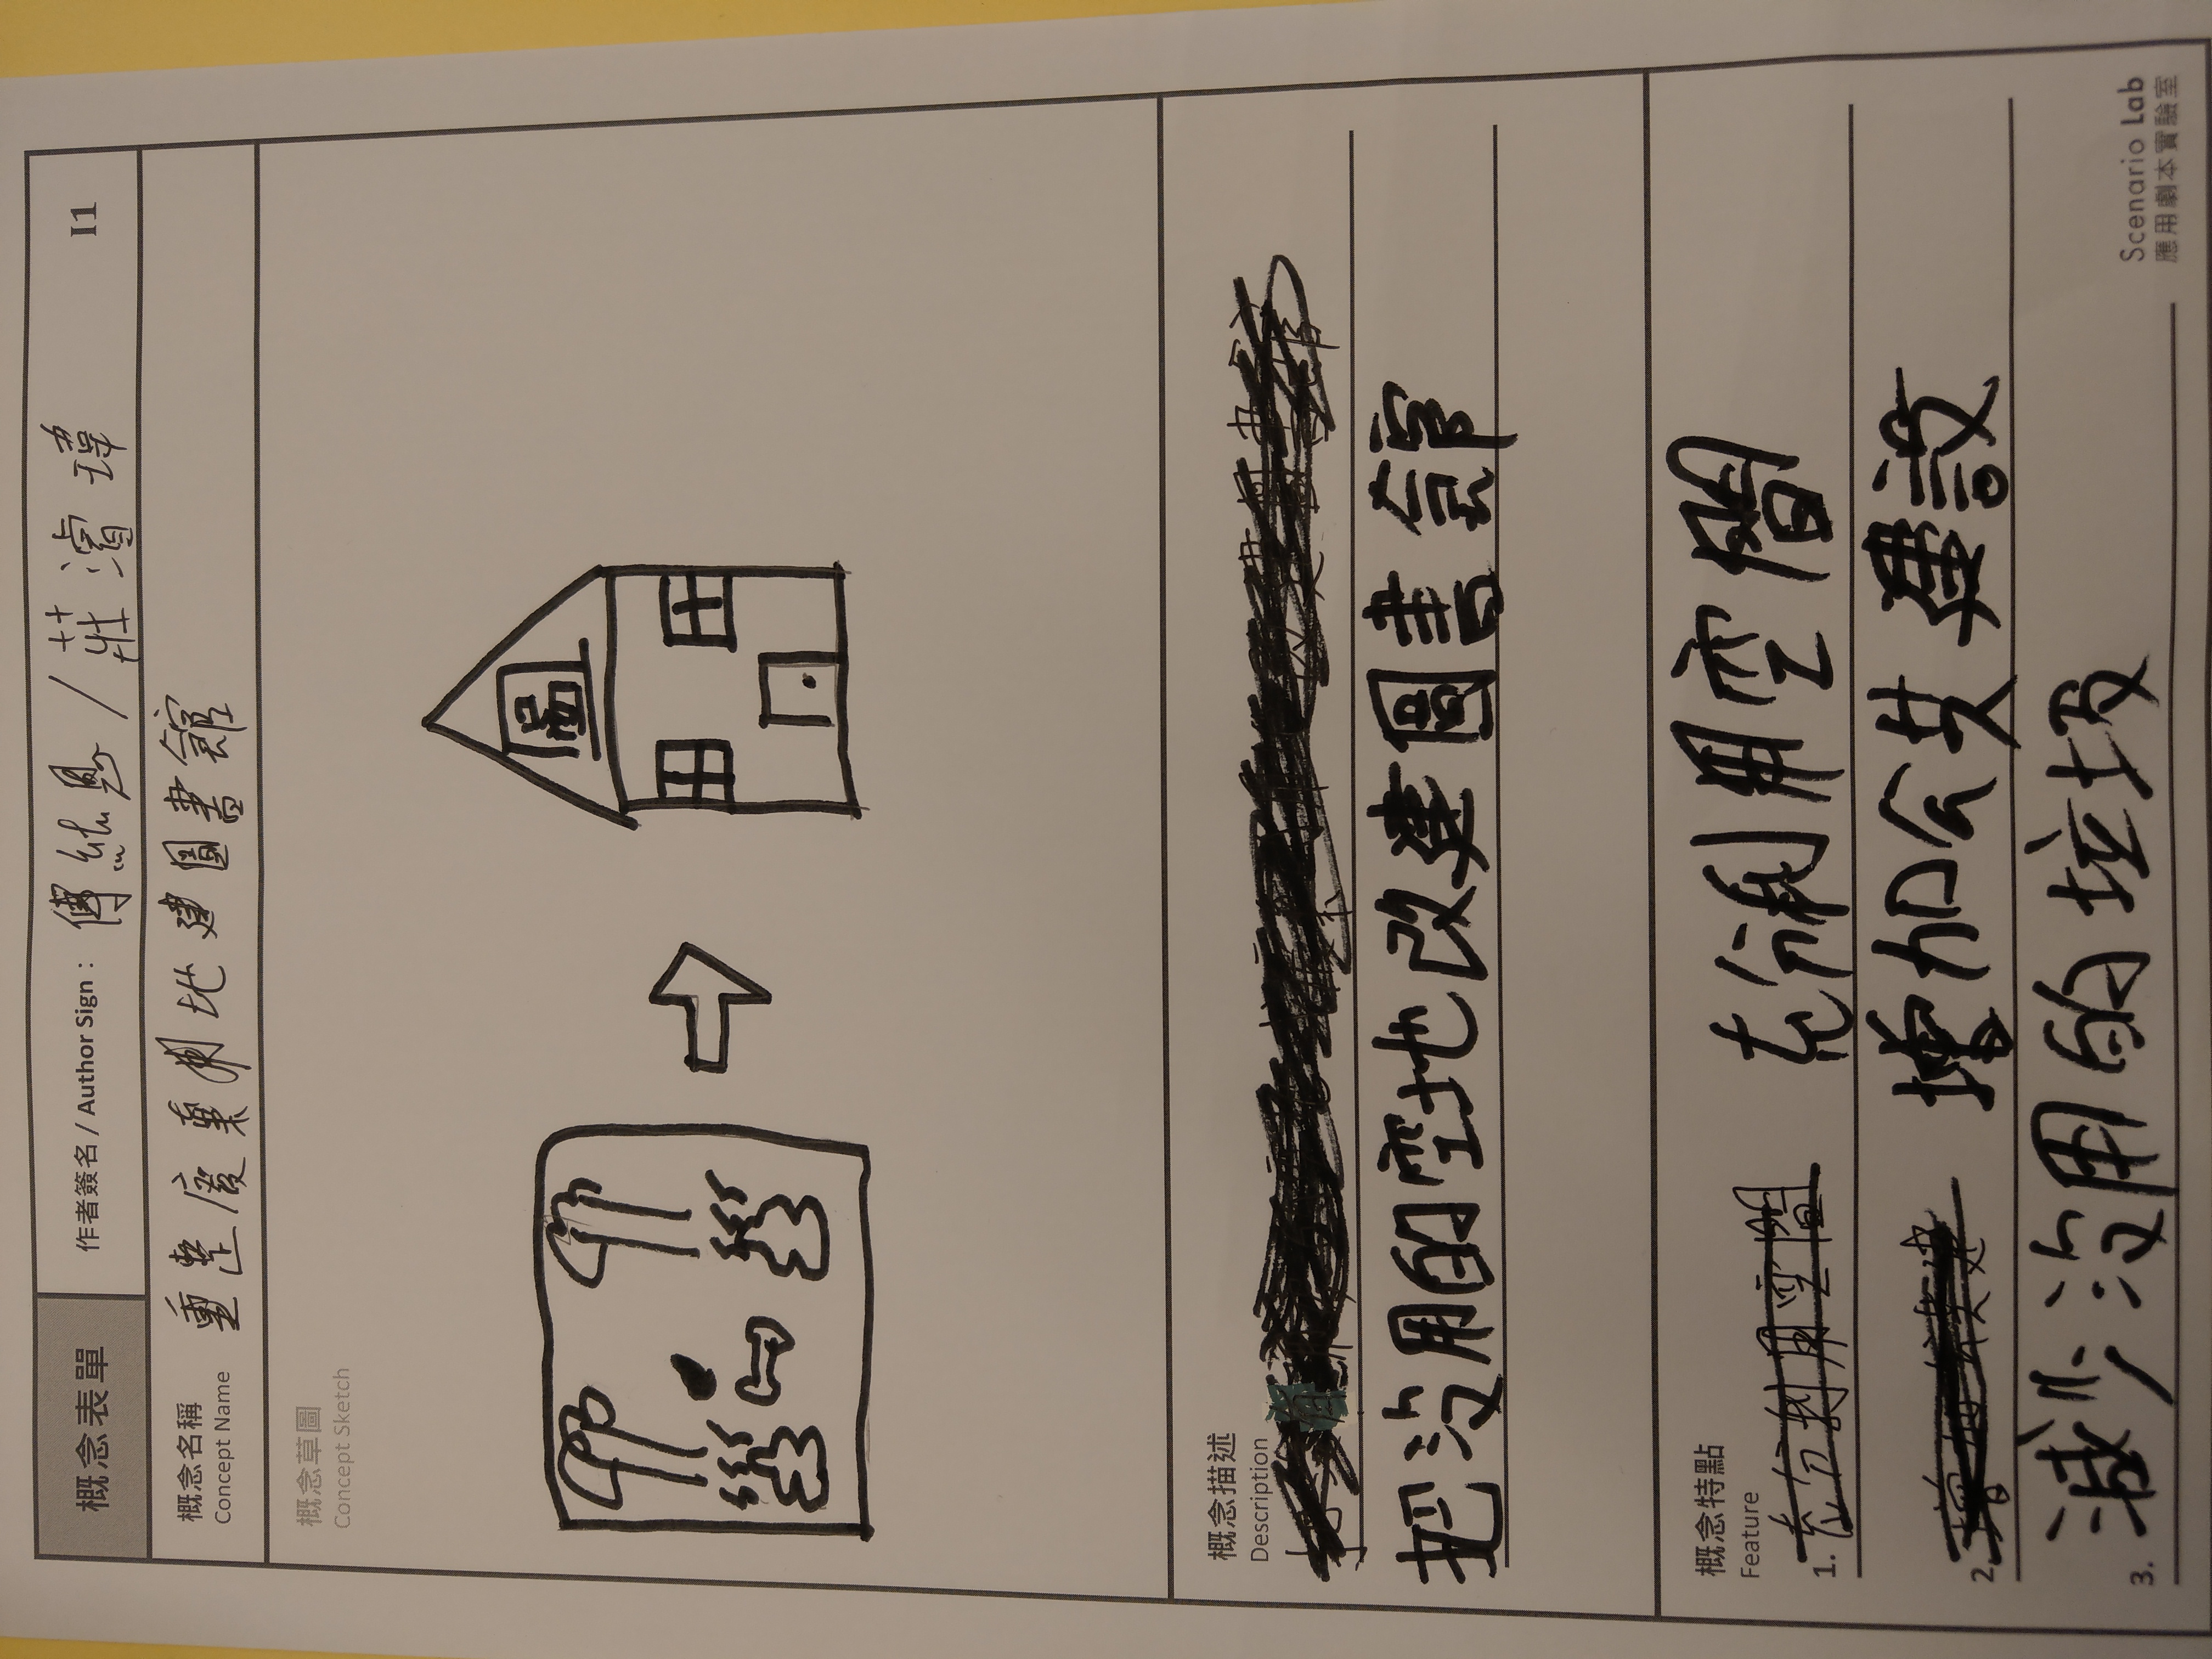 概念表單
作者簽名 / Author Sign： 傅結恩 / 莊濱瑋
I1
概念名稱
Concept Name
重整廢棄用地建圖書館
概念草圖
Concept Sketch
圖
概念描述
Description
建圖書館
把沒用的空地改建圖書館
概念特點
Feature
1. 充分利用空間 充分利用空間
2. 增加公共建 增加公共建設
3. 減少沒用的垃圾
Scenario Lab
應用劇本實驗室